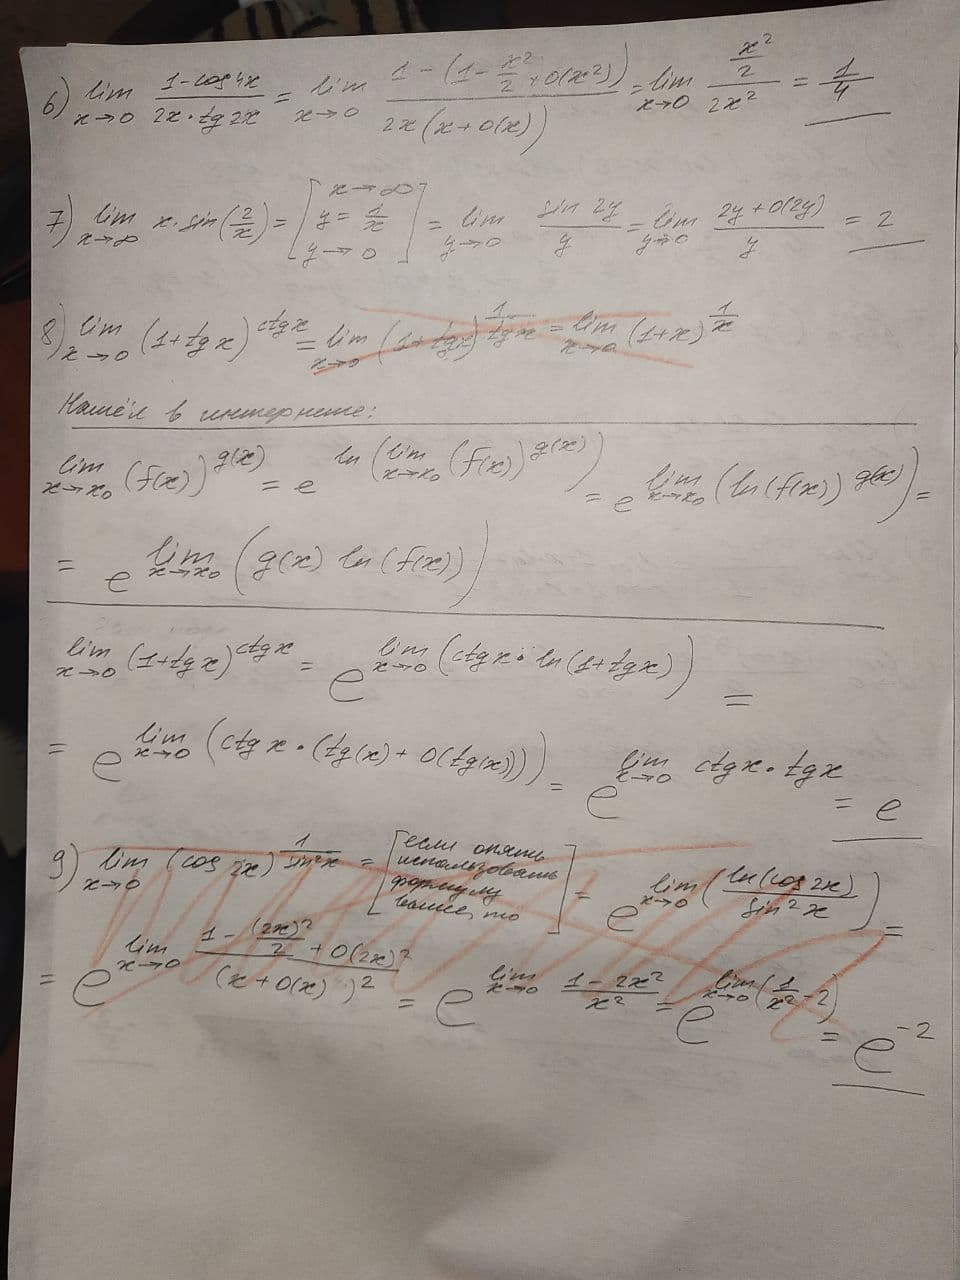 6) lim x→0 (1-cos4x)/(2x·tg2x) = lim x→0 (1-(1-x²/2+O(x²)))/(2x(x+O(x))) = lim x→0 (x²/2)/(2x²) = 1/4
7) lim x→∞ x·sin(2/x) = [x→∞ y=1/x y→0] = lim y→0 (sin 2y)/y = lim y→0 (2y+O(2y))/y = 2
8) lim x→0 (1+tgx)^(ctgx) = lim x→0 (1+tgx)^(1/tgx) = lim x→0 (1+x)^(1/x)
Нашёл в интернете:
lim x→x₀ (f(x))^(g(x)) = e^(ln(lim x→x₀ (f(x))^(g(x)))) = e^(lim x→x₀ (ln(f(x))^(g(x)))) =
= e^(lim x→x₀ (g(x) ln(f(x))))
lim x→0 (1+tgx)^(ctgx) = e^(lim x→0 (ctgx·ln(1+tgx))) =
= e^(lim x→0 (ctgx·(tg(x)+O(tg(x))))) = e^(lim x→0 ctgx·tgx) = e
9) lim x→0 (cos 2x)^(1/sin²x) = [если опять использовать формулу выше, то] = e^(lim x→0 (ln(cos2x)/sin²x)) =
= e^(lim x→0 (1-(2x)²/2+O(2x)²)/(x+O(x))²) = e^(lim x→0 (1-2x²)/x²) = e^(lim x→0 (1/x²-2)) = e^(-2)